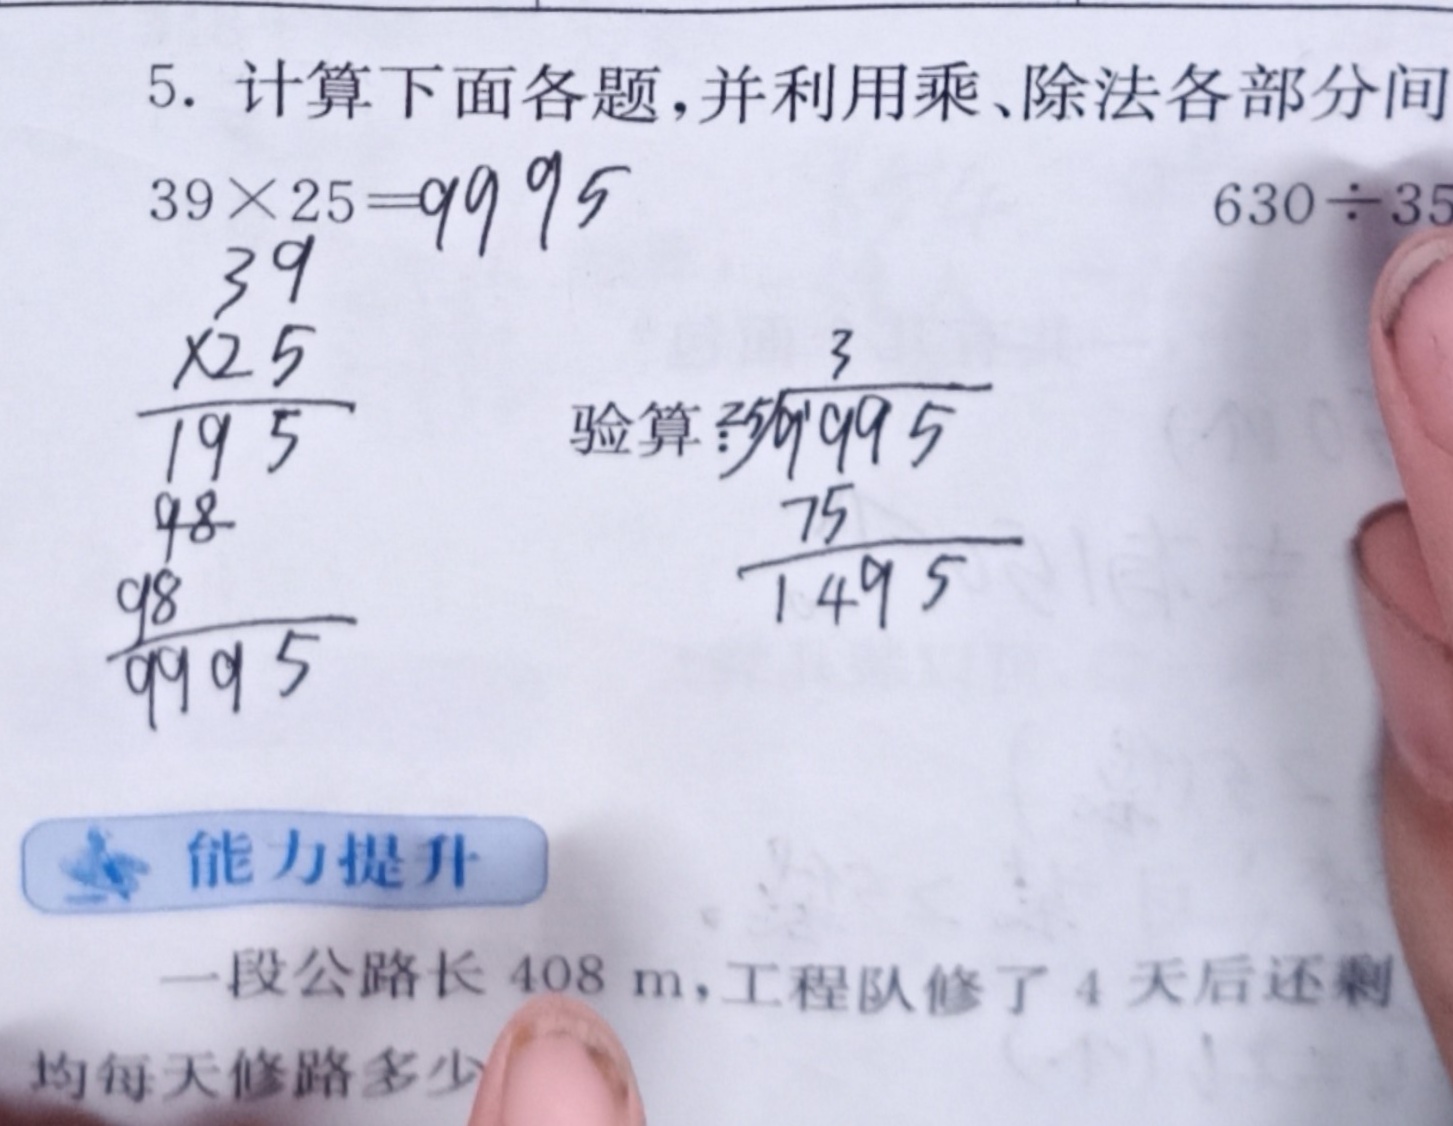 5. 计算下面各题,并利用乘、除法各部分间
39×25=9995
630÷35
39
×25
195
98
98
9995
3
验算:25 9995
75
1495
能力提升
一段公路长 408 m,工程队修了 4 天后还剩
均每天修路多少